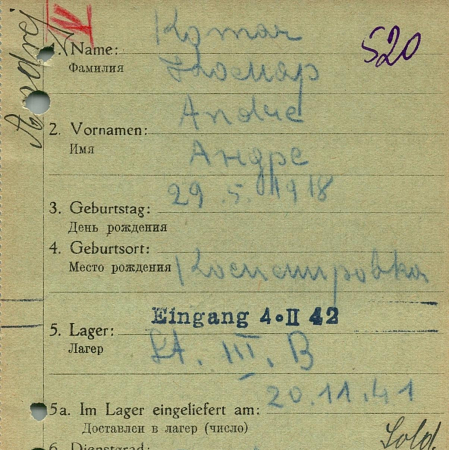 IV
520
Komar
1. Name:
Фамилия
Комар
Andre
2. Vornamen:
Имя
Андре
29.5.1918
3. Geburtstag:
День рождения
4. Geburtsort:
Место рождения
Eingang 4·II 42
5. Lager:
Лагер
St. III. B
20.11.41
5a. Im Lager eingeliefert am:
Доставлен в лагер (число)
Sold.
6. Dienstgrad: